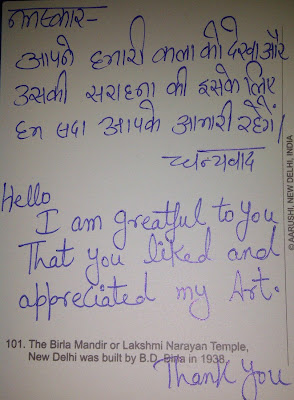 नमस्कार-
आपने हमारी कला को देखा और
उसकी सराहना की इसके लिए
हम सदा आपके आभारी रहेगें।
धन्यवाद
Hello
I am greatful to you
That you liked and
appreciated my Art.
101. The Birla Mandir or Lakshmi Narayan Temple,
New Delhi was built by B.D. Birla in 1938.
Thank You
© AARUSHI, NEW DELHI, INDIA